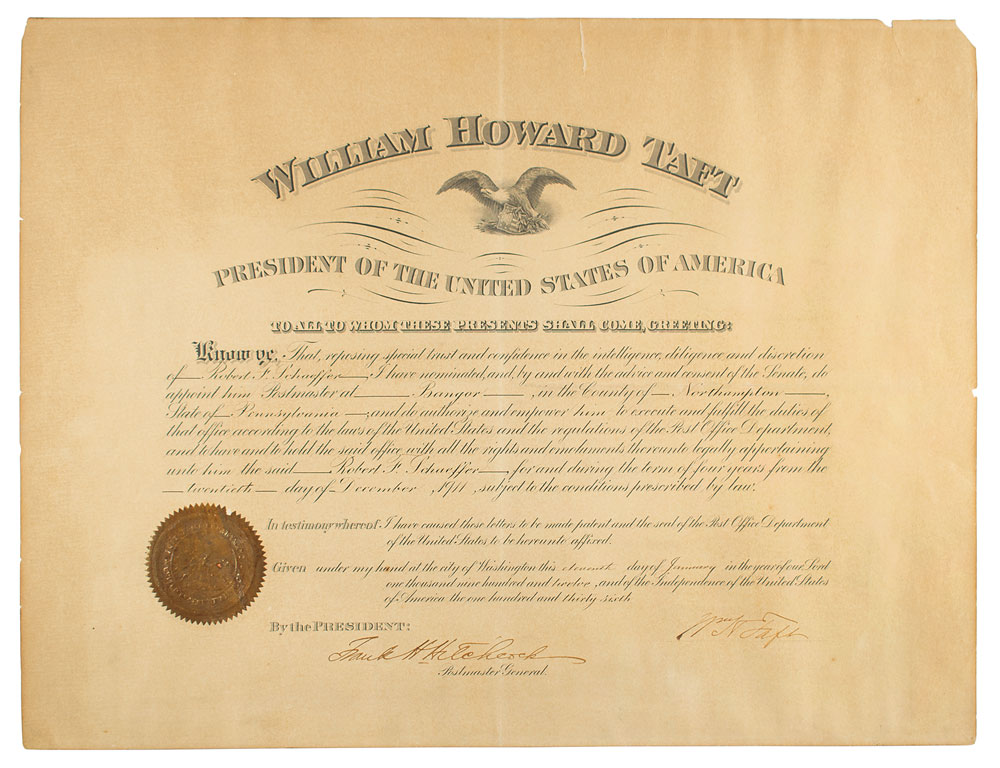 WILLIAM HOWARD TAFT
PRESIDENT OF THE UNITED STATES OF AMERICA
TO ALL TO WHOM THESE PRESENTS SHALL COME, GREETING:
Know ye, That, reposing special trust and confidence in the intelligence, diligence and discretion
of Robert F. Schaeffer, I have nominated, and, by and with the advice and consent of the Senate, do
appoint him Postmaster at Bangor, in the County of Northampton,
State of Pennsylvania, and do authorize and empower him to execute and fulfill the duties of
that office according to the laws of the United States and the regulations of the Post Office Department,
and to have and to hold the said office, with all the rights and emoluments thereunto legally appertaining
unto him the said Robert F. Schaeffer, for and during the term of four years from the
twentieth day of December, 1911, subject to the conditions prescribed by law.
In testimony whereof, I have caused these letters to be made patent and the seal of the Post Office Department
of the United States to be hereunto affixed.
Given under my hand at the city of Washington this eleventh day of January in the year of our Lord
one thousand nine hundred and twelve, and of the Independence of the United States
of America the one hundred and thirty sixth
By the PRESIDENT:
Wm H Taft
Frank H Hitchcock
Postmaster General.